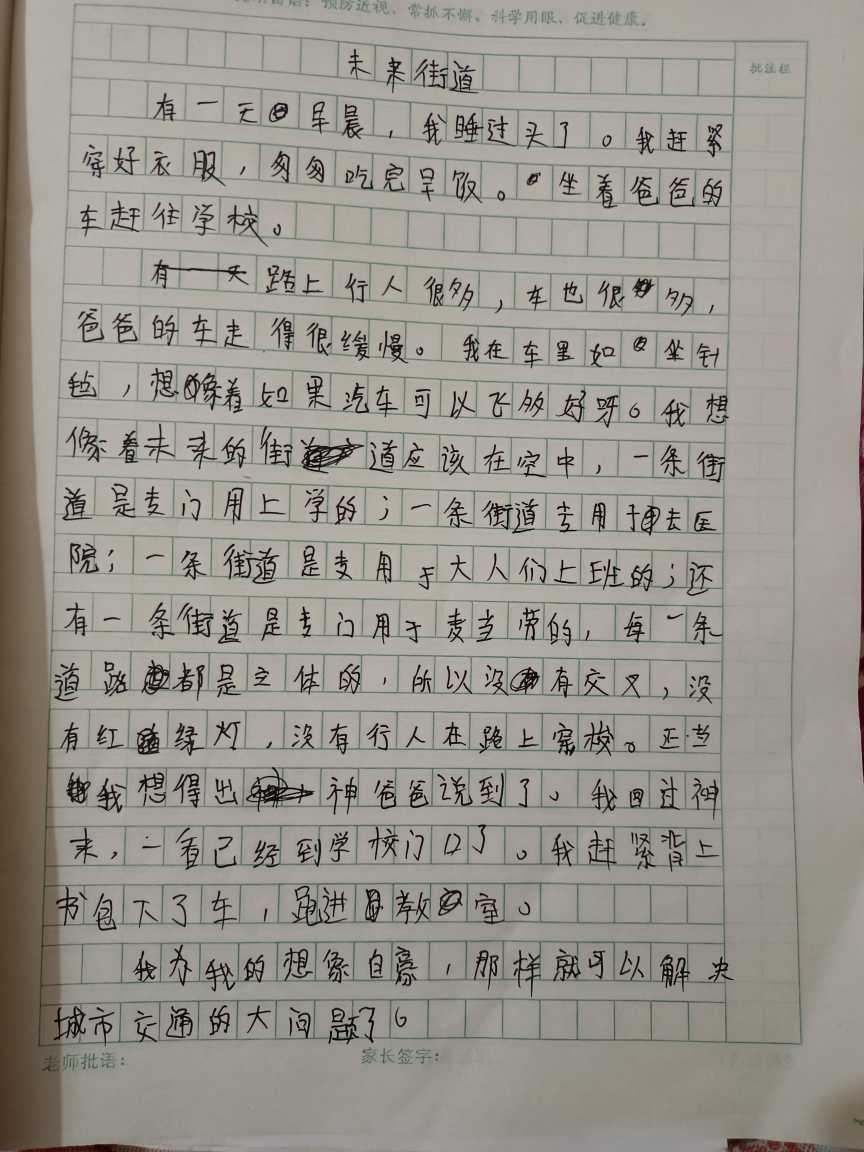 预防近视、常抓不懈、科学用眼、促进健康。
批注栏
未来街道
有一天早晨，我睡过头了。我赶紧
穿好衣服，匆匆吃完早饭。坐着爸爸的
车赶往学校。
路上行人很多，车也很多，
爸爸的车走得很缓慢。我在车里如坐针
毡，想像着如果汽车可以飞多好呀。我想
像着未来的街道应该在空中，一条街
道是专门用上学的；一条街道专用于去医
院；一条街道是专用于大人们上班的；还
有一条街道是专门用于麦当劳的，每一条
道路都是立体的，所以没有交叉，没
有红绿灯，没有行人在路上穿梭。正当
我想得出神爸爸说到了。我回过神
来，一看已经到学校门口了。我赶紧背上
书包下了车，跑进教室。
我为我的想象自豪，那样就可以解决
城市交通的大问题了。
老师批语： 家长签字：